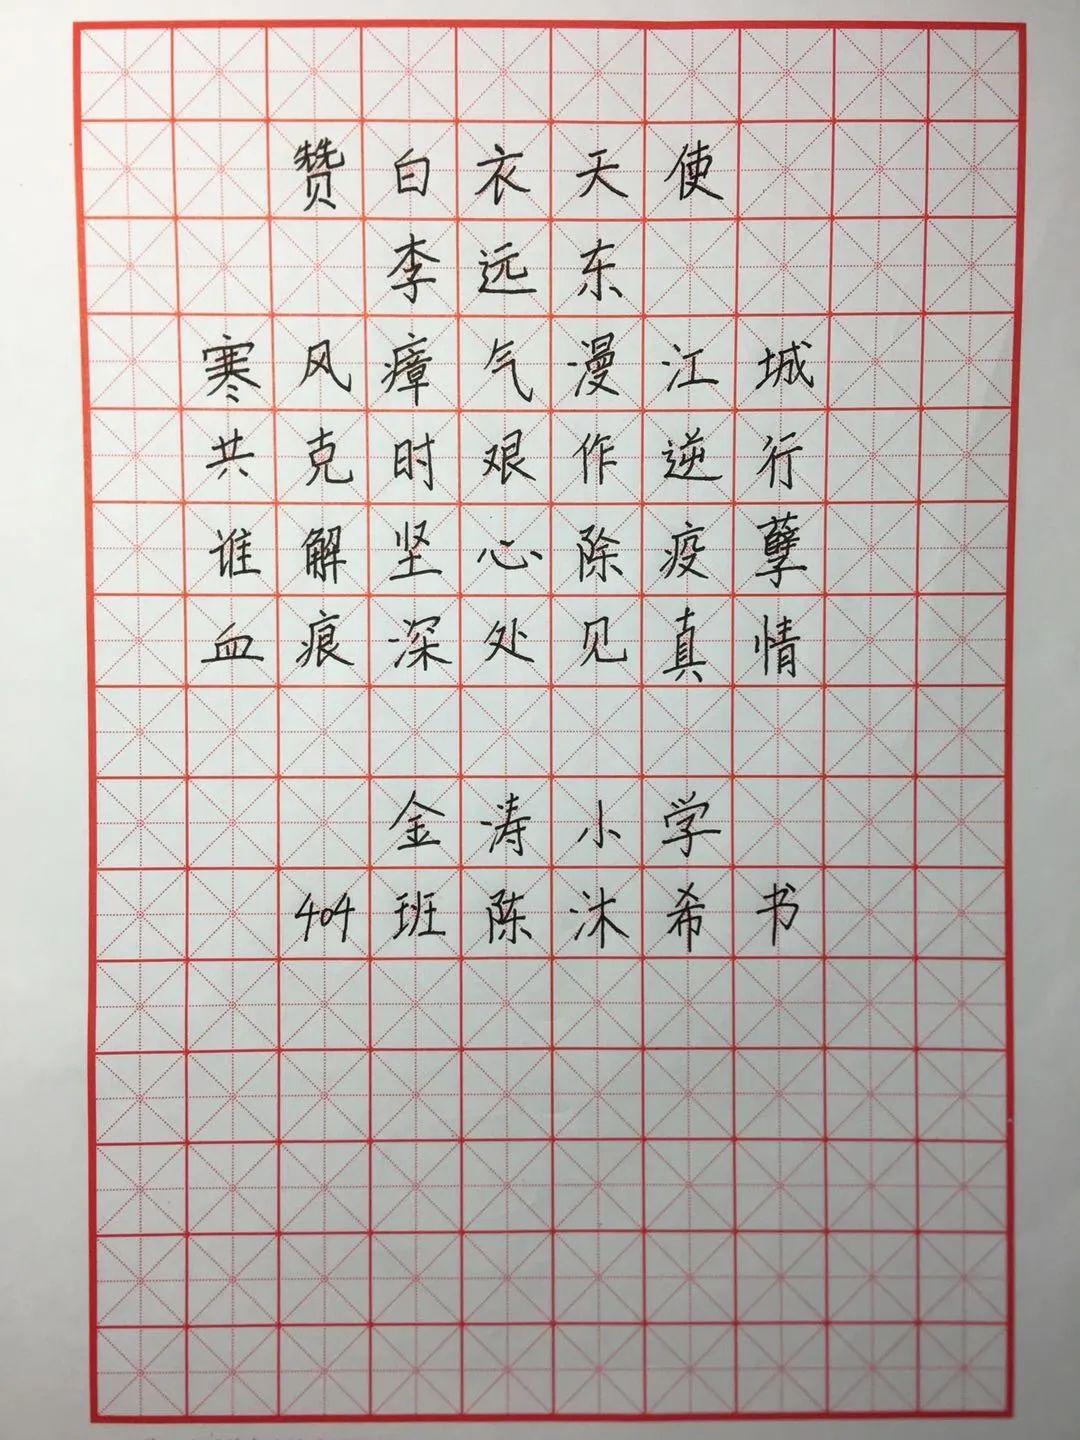 赞白衣天使
李远东
寒风瘴气漫江城
共克时艰作逆行
谁解坚心除疫孽
血痕深处见真情
金涛小学
404班陈沐希书